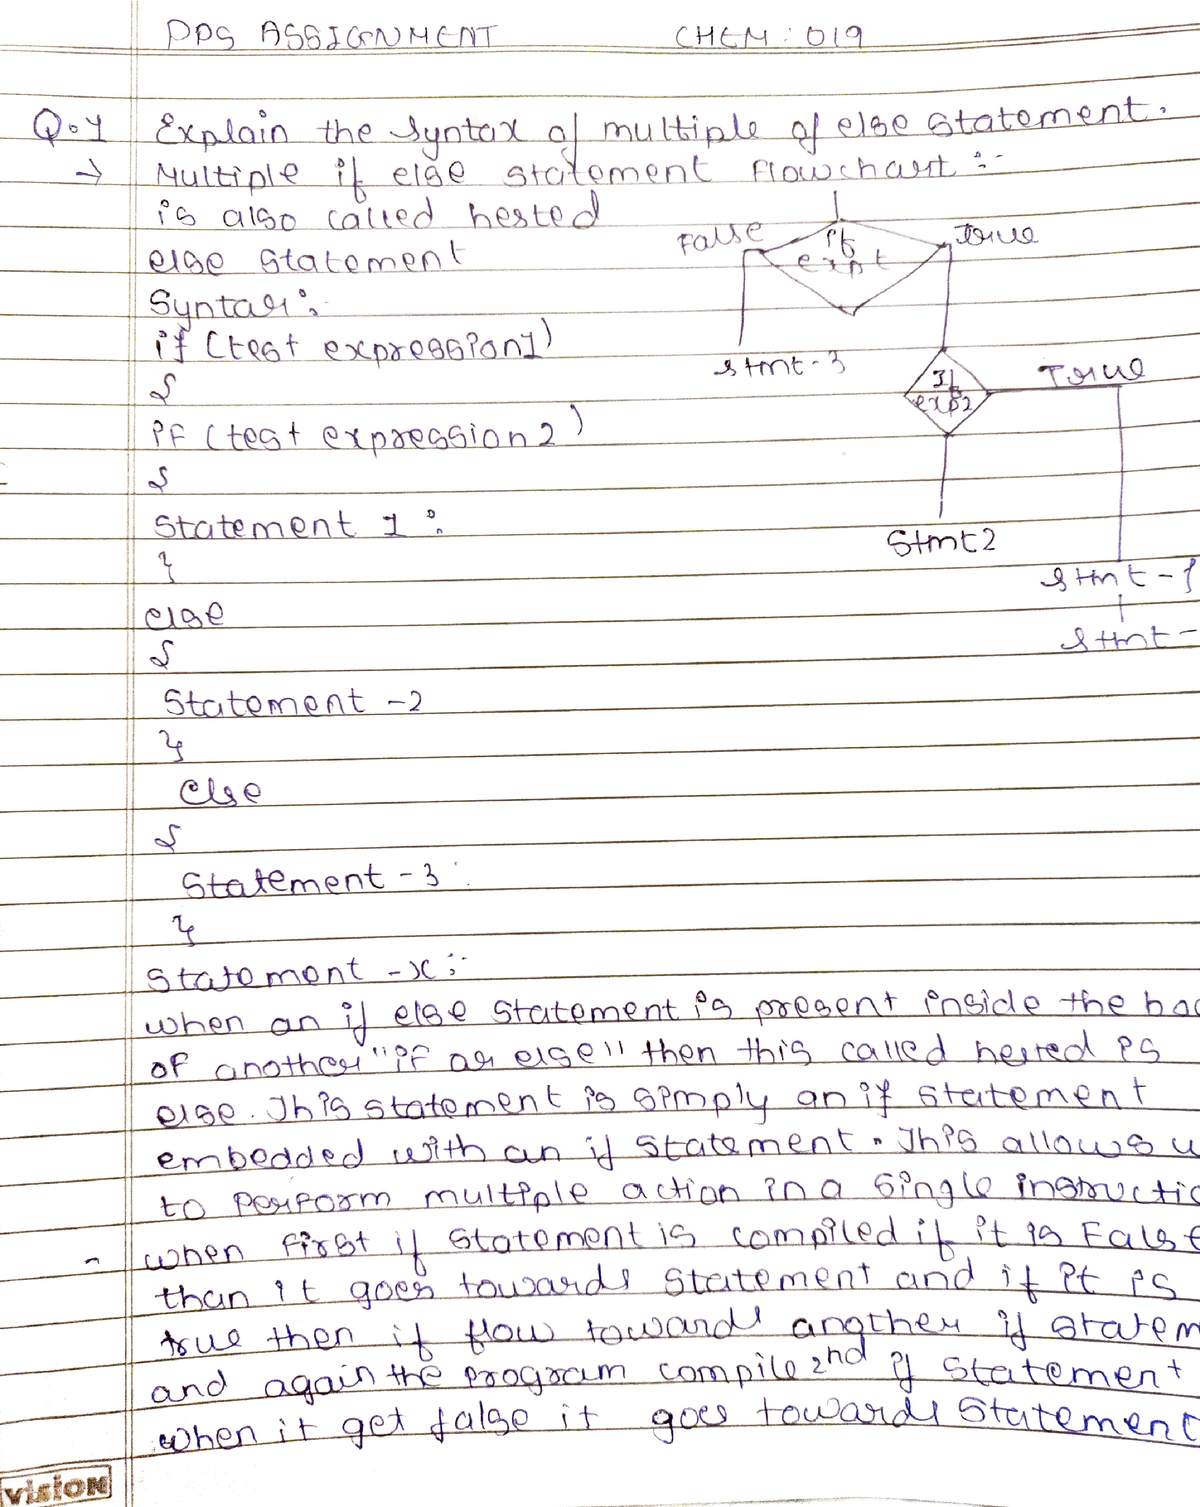 PPS ASSIGNMENT CHEM : 019
Q.1 Explain the syntax of multiple of else statement.
→ Multiple if else statement Flowchart :-
is also called nested
else statement
Syntax :
if (test expression1)
{
if (test expression 2)
{
Statement 1 :
}
else
{
Statement -2
}
else
{
Statement - 3
}
Statement -x :-
False if exp1 True
stmt-3
If exp2 True
Stmt2
stmt-1
stmt-
when an if else statement is present inside the
of another "if or else" then this called nested is
else. This statement is simply an if statement
embedded with an if statement. This allows u
to perform multiple action in a single instructio
- when first if statement is compiled if it is False
than it goes towards statement and if it is
true then if flow towards another if statem
and again the program compile 2nd if statement
when it get false it goes towards statement
vision